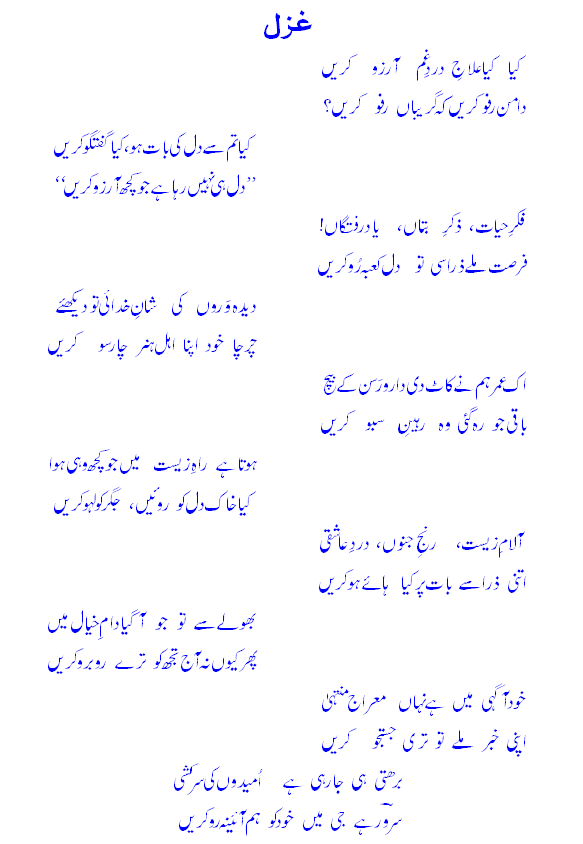 غزل
کیا کیا علاجِ دردِ غمِ آرزو کریں
دامن رفو کریں کہ گریباں رفو کریں؟
کیا تم سے دل کی بات ہو، کیا گفتگو کریں
”دل ہی نہیں رہا ہے جو کچھ آرزو کریں“
فکرِ حیات، ذکرِ بتاں، یادِ رفتگاں!
فرصت ملے ذرا سی تو دل کعبہ رُو کریں
دیدہ وَروں کی شانِ خدائی تو دیکھئے
چرچا خود اپنا اہلِ ہنر چار سو کریں
اک عمر ہم نے کاٹ دی دار و رَسن کے بیچ
باقی جو رہ گئی وہ رہینِ سبو کریں
ہوتا ہے راہِ زیست میں جو کچھ وہی ہوا
کیا خاک دل کو روئیں، جگر کو لہو کریں
آلامِ زیست، رنجِ جنوں، دردِ عاشقی
اتنی ذرا سے بات پر کیا ہائے ہو کریں
بھولے سے تو جو آ گیا دامِ خیال میں
پھر کیوں نہ آج تجھ کو ترے روبرو کریں
خود آگہی میں ہے نہاں معراجِ منتہیٰ
اپنی خبر ملے تو تری جستجو کریں
بڑھتی ہی جا رہی ہے اُمیدوں کی سرکشی
سرورؔ ہے جی میں خود کو ہم آئینہ رو کریں